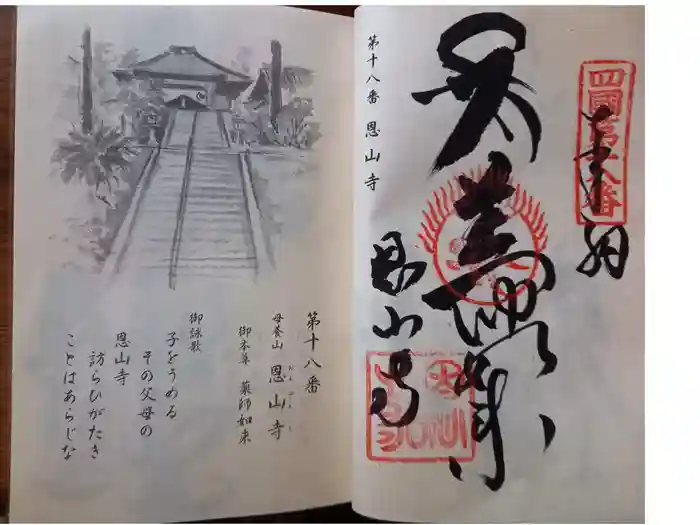 四國第十八番
奉納
薬師如来
恩山寺
第十八番 恩山寺
第十八番
母養山 恩山寺
おんざんじ
御本尊 薬師如来
御詠歌
子をうめる
その父母の
恩山寺
訪らひがたき
ことはあらじな